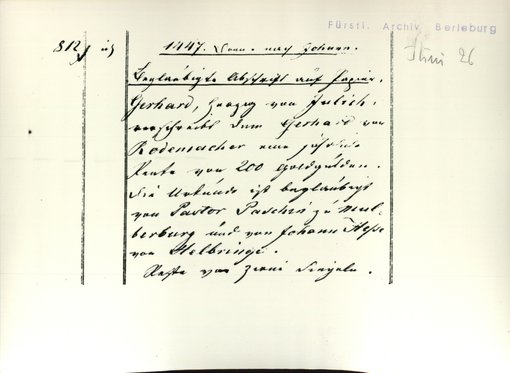 Fürstl. Archiv Berleburg
26
812
1447. Sonn. nach Johann.
Beglaubigte Abschrift auf Papier.
Gerhard, Herzog von Julich,
verschreibt dem Gerhard von
Rodemacher eine jährliche
Rente von 200 Goldgulden.
Die Urkunde ist beglaubigt
von Pastor Paschin zu Mul-
berburg und von Johann Hesse
von Helbringe.
Reste von zwei Siegeln.